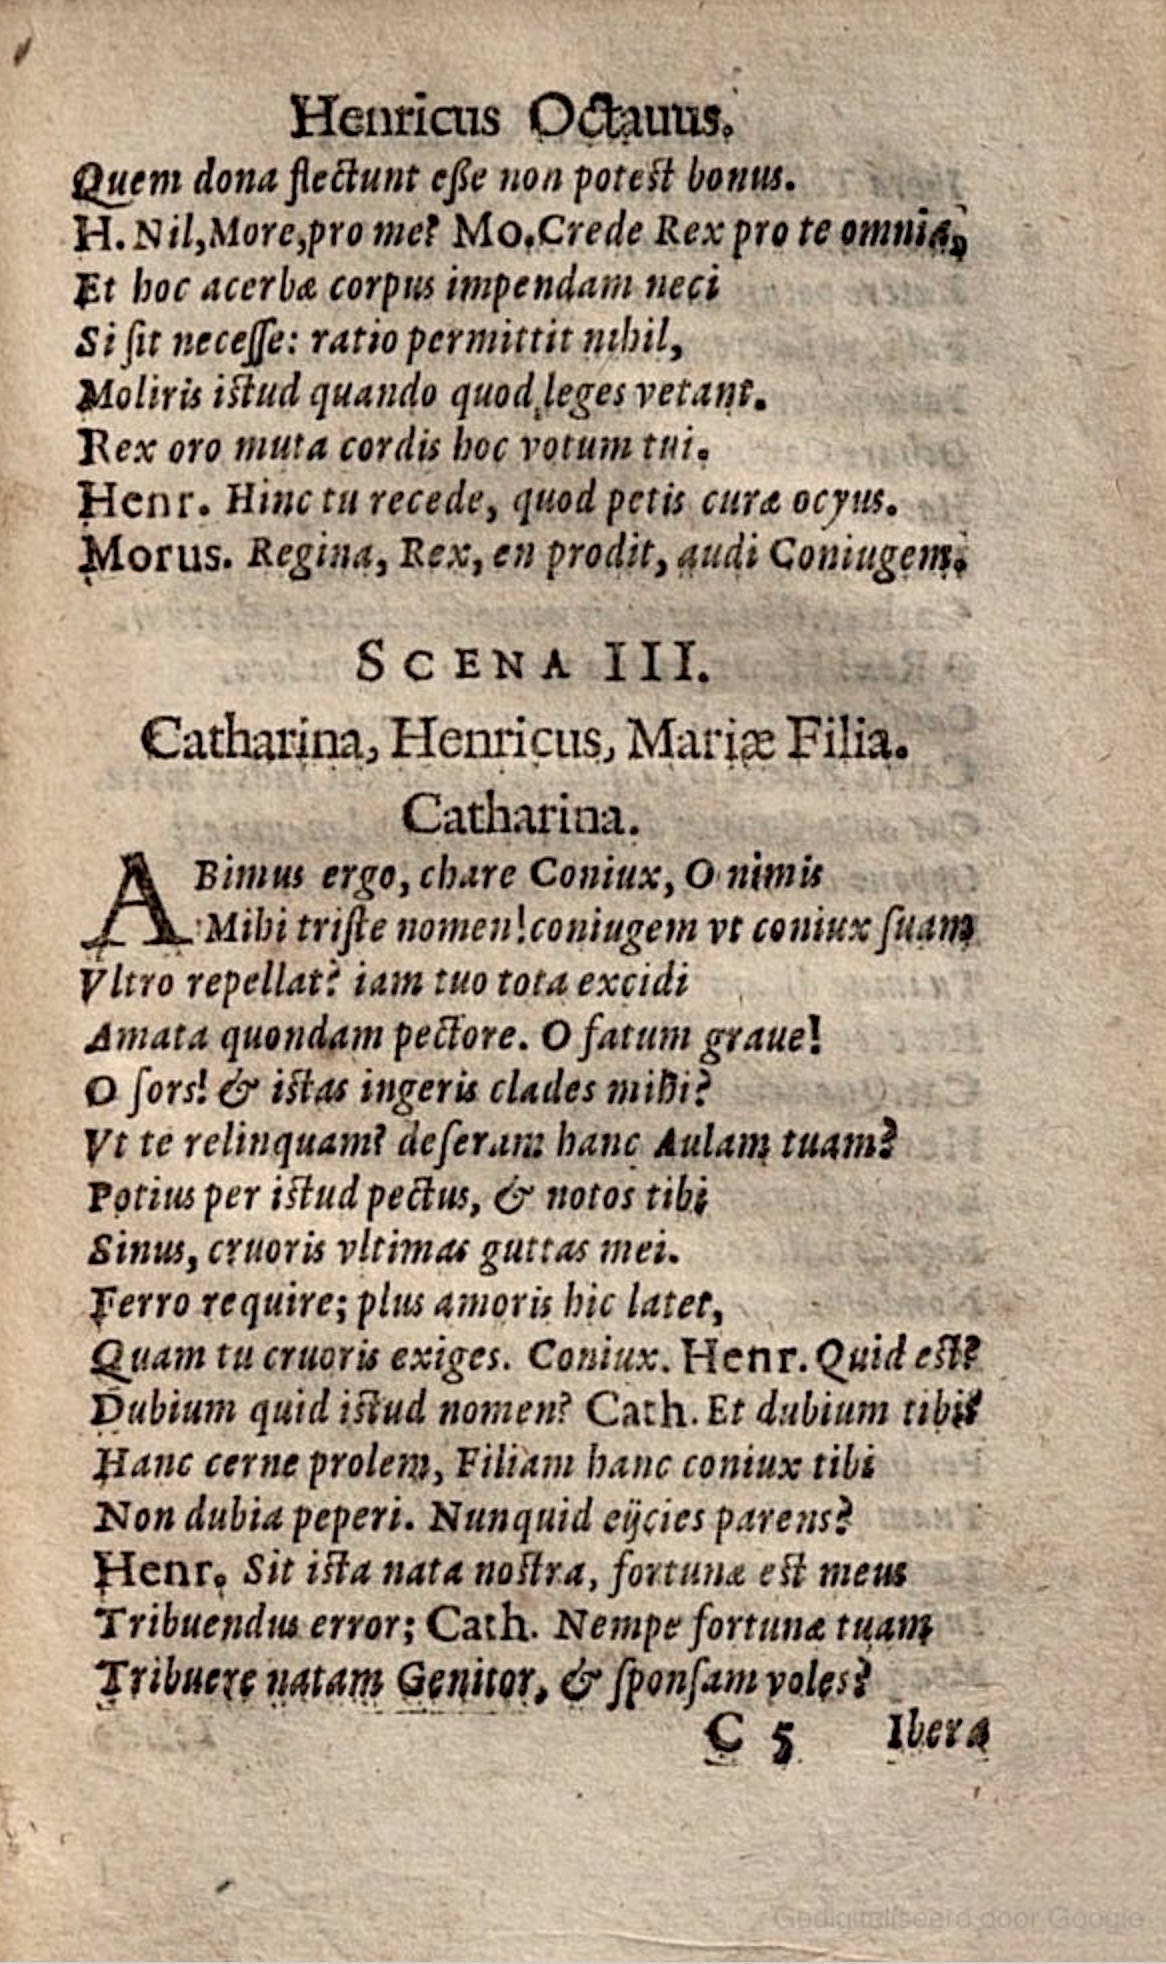 Henricus Octauus.
Quem dona flectunt eße non potest bonus.
H. Nil, More, pro me? Mo. Crede Rex pro te omnia,
Et hoc acerbæ corpus impendam neci
Si ſit neceſſe: ratio permittit nihil,
Moliris istud quando quod leges vetant.
Rex oro muta cordis hoc votum tui.
Henr. Hinc tu recede, quod petis curæ ocyus.
Morus. Regina, Rex, en prodit, audi Coniugem.
SCENA III.
Catharina, Henricus, Mariæ Filia.
Catharina.
ABimus ergo, chare Coniux, O nimis
Mihi triſte nomen! coniugem vt coniux ſuam
Vltro repellat? iam tuo tota excidi
Amata quondam pectore. O fatum graue!
O ſors! & istas ingeris clades mihi?
Vt te relinquam? deſeram hanc Aulam tuam?
Potius per istud pectus, & notos tibi
Sinus, cruoris vltimas guttas mei.
Ferro require; plus amoris hic latet,
Quam tu cruoris exiges. Coniux. Henr. Quid est?
Dubium quid istud nomen? Cath. Et dubium tibi?
Hanc cerne prolem, Filiam hanc coniux tibi
Non dubia peperi. Nunquid eijcies parens?
Henr. Sit ista nata nostra, fortunæ est meus
Tribuendus error; Cath. Nempe fortunæ tuam
Tribuere natam Genitor, & ſponſam voles?
C 5 Ibera
Gedigitaliseerd door Google